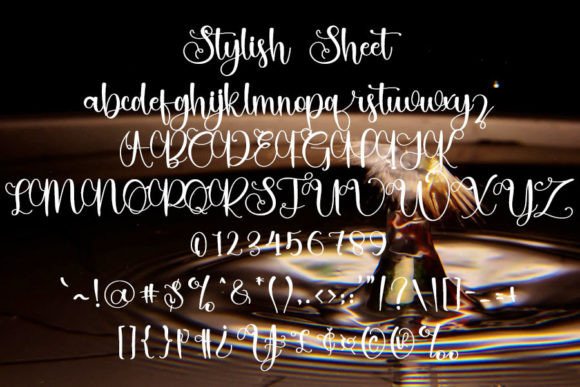 Stylish Sheet
abcdefghijklmnopqrstuvwxyz
ABCDEFGHIJK
LMNOPQRSTUVWXYZ
0123456789
`~!@#$%^&*(),.<>;:'"/?\|[]-_=+
[]{}¡¶¿¥£¢©®‰